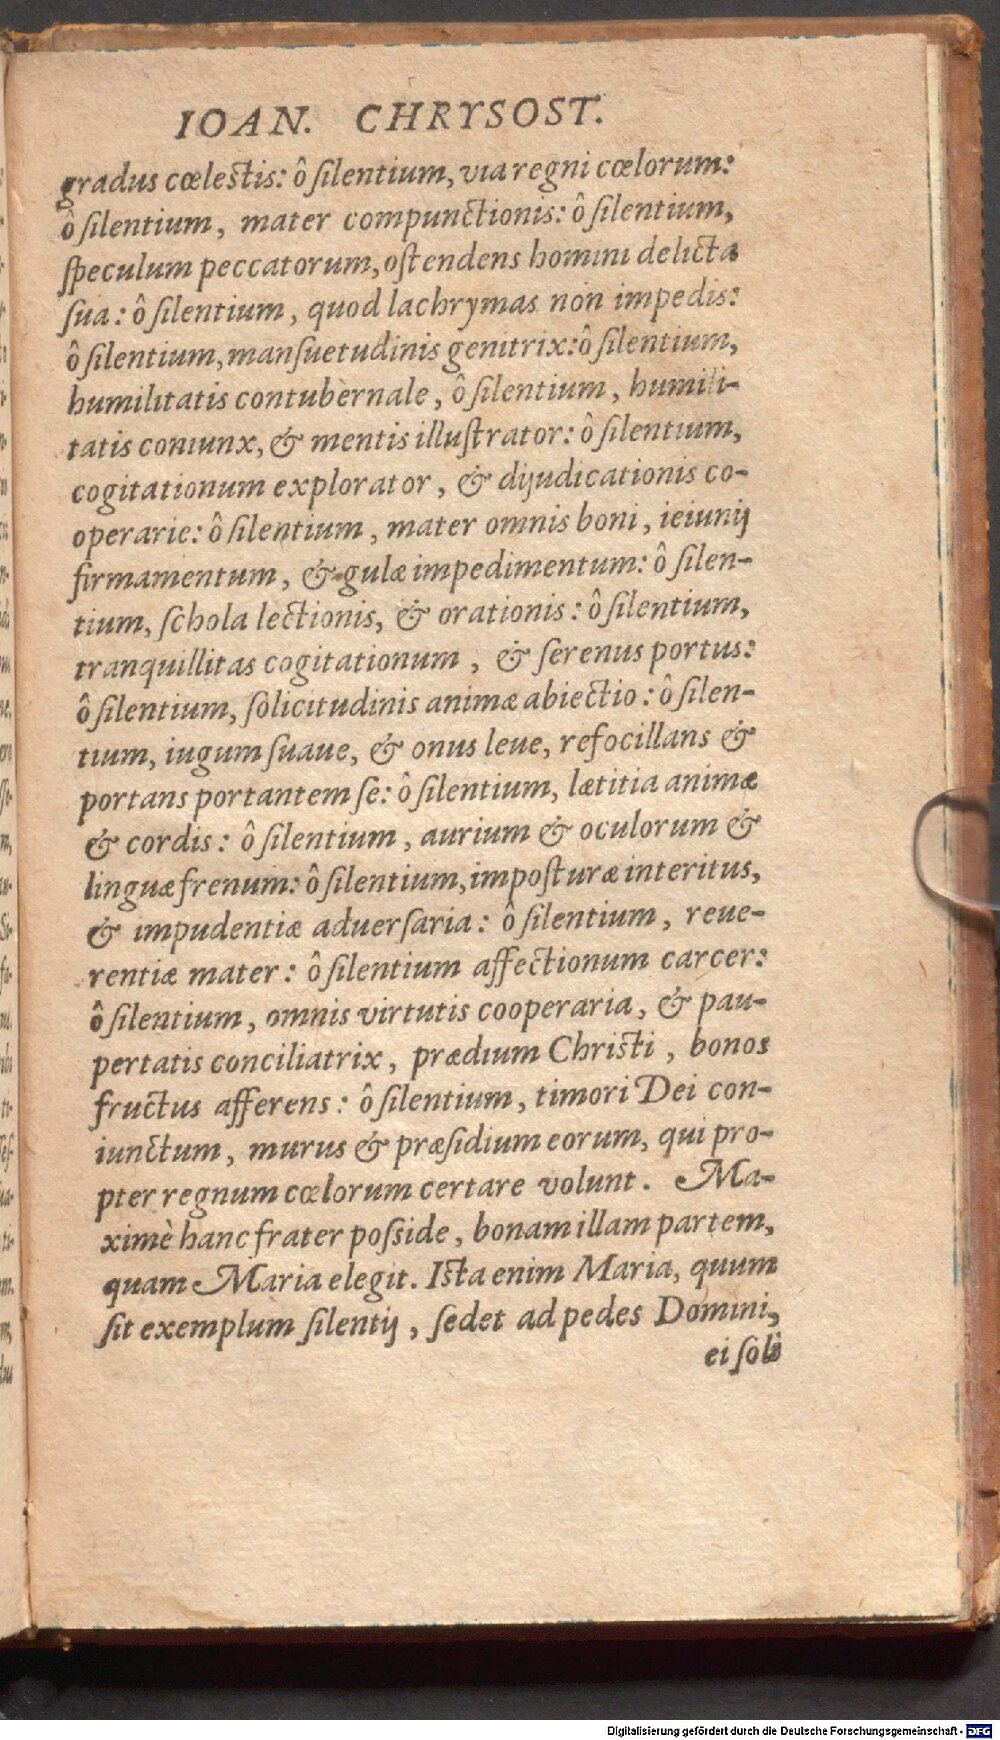 IOAN. CHRYSOST.
gradus cœlestis: ô ſilentium, via regni cœlorum:
ô ſilentium, mater compunctionis: ô ſilentium,
ſpeculum peccatorum, oſtendens homini delicta
ſua: ô ſilentium, quod lachrymas non impedis:
ô ſilentium, manſuetudinis genitrix: ô ſilentium,
humilitatis contubernale, ô ſilentium, humili-
tatis coniunx, & mentis illuſtrator: ô ſilentium,
cogitationum explorator, & dijudicationis co-
operarie: ô ſilentium, mater omnis boni, ieiunij
firmamentum, & gulæ impedimentum: ô ſilen-
tium, ſchola lectionis, & orationis: ô ſilentium,
tranquillitas cogitationum, & ſerenus portus:
ô ſilentium, ſolicitudinis animæ abiectio: ô ſilen-
tium, iugum ſuaue, & onus leue, refocillans &
portans portantem ſe: ô ſilentium, lætitia animæ
& cordis: ô ſilentium, aurium & oculorum &
linguæ frenum: ô ſilentium, impoſturæ interitus,
& impudentiæ aduerſaria: ô ſilentium, reue-
rentiæ mater: ô ſilentium affectionum carcer:
ô ſilentium, omnis virtutis cooperaria, & pau-
pertatis conciliatrix, prædium Christi, bonos
fructus afferens: ô ſilentium, timori Dei con-
iunctum, murus & præſidium eorum, qui pro-
pter regnum cœlorum certare volunt. Ma-
ximè hanc frater poſside, bonam illam partem,
quam Maria elegit. Ista enim Maria, quum
ſit exemplum ſilentij, ſedet ad pedes Domini,
ei ſoli
Digitalisierung gefördert durch die Deutsche Forschungsgemeinschaft - DFG